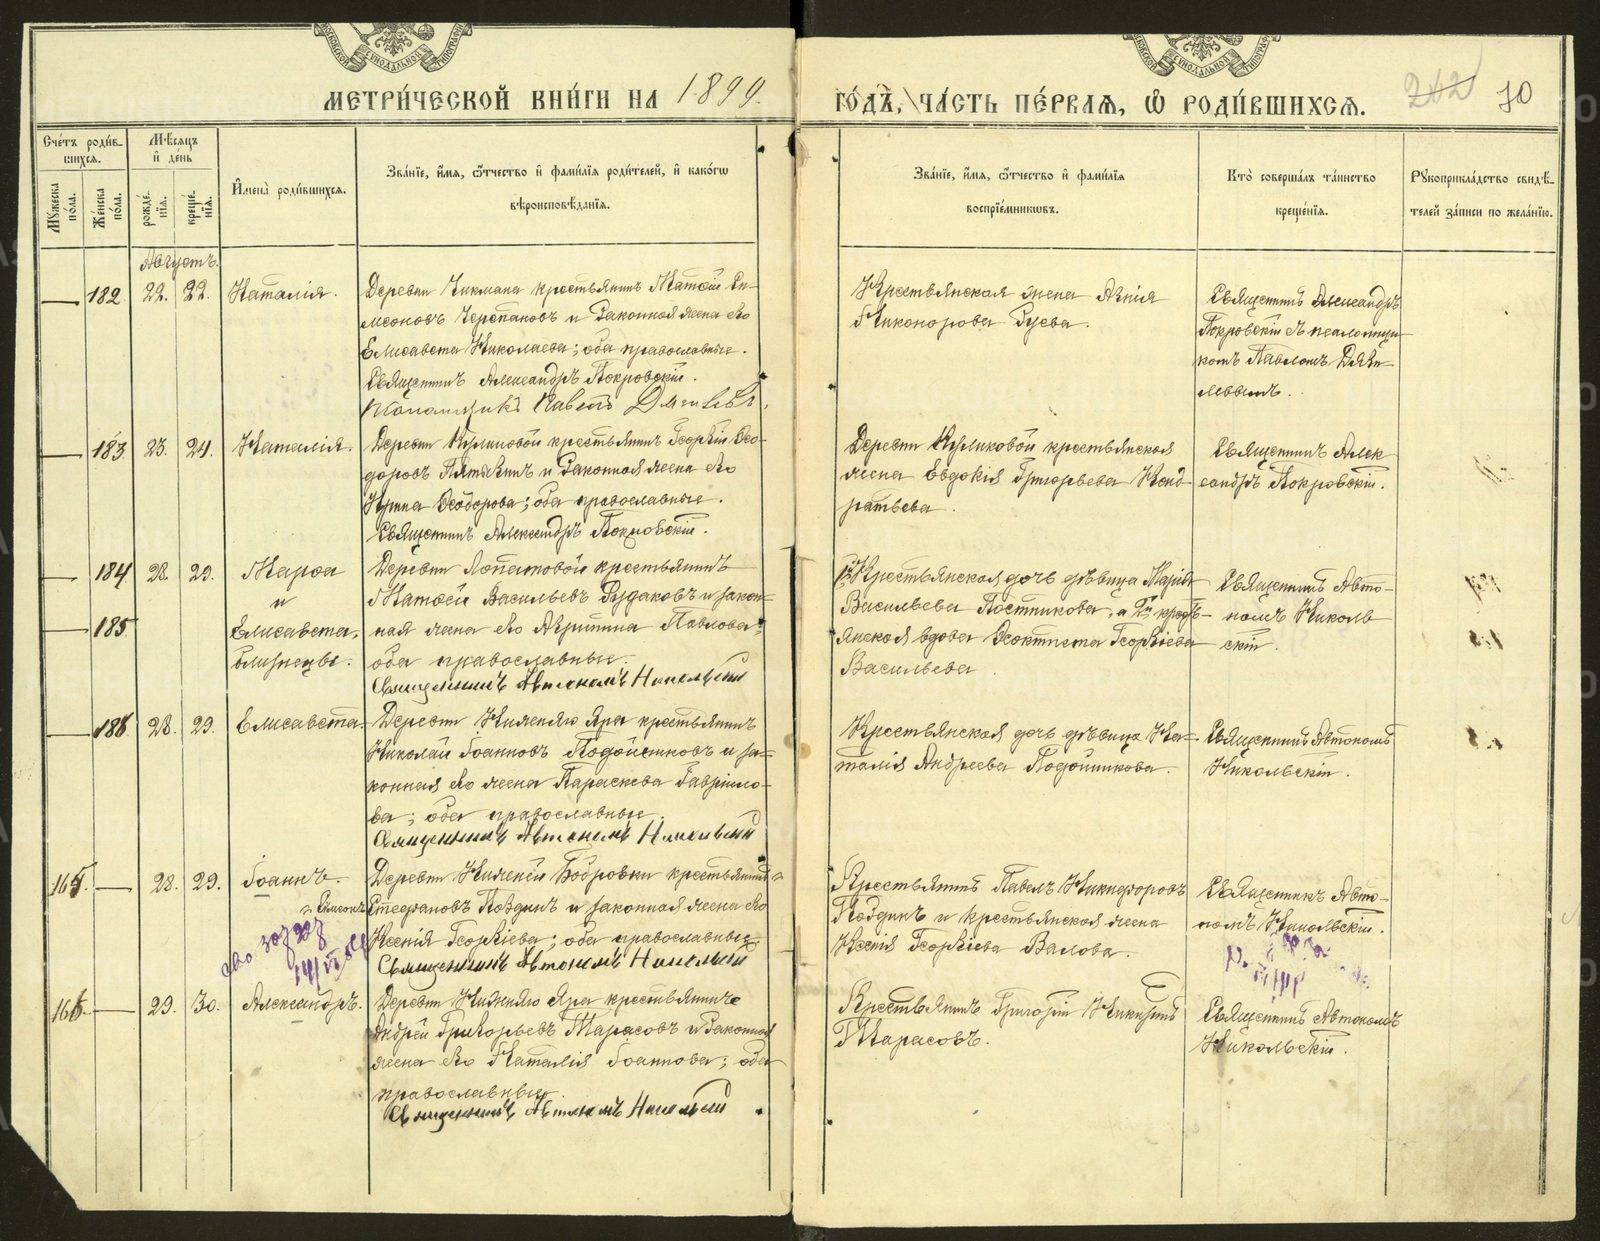 МЕТРИ́ЧЕСКОЙ КНИ́ГИ НА 1899.
ГО́ДЪ, ЧА́СТЬ ПЕ́РВАѦ, Ѡ҆ РОДИ́ВШИХСѦ.
70
Сче́тъ роди́в-
шихся.
Мѣ́сяцъ
и҆ де́нь
Му́жеска по́ла.
Же́нска по́ла.
рожде́-
нїя.
креще́-
нїя.
И҆мена̀ роди́вшихся.
Зва́нїе, и҆́мя, ѻ҆́тчество и҆ фами́лїя роди́телей, и҆ како́гѡ
вѣроисповѣ́данїя.
Зва́нїе, и҆́мя, ѻ҆́тчество и҆ фами́лїя
воспрїе́мниковъ.
Кто̀ соверша́лъ та́инство
креще́нїя.
Рꙋкоприкла́дство свидѣ́-
телей за́писи по жела́нїю.
Августъ.
182 22. 22. Наталія.
Деревни Чикмана крестьянинъ Матѳій Си-
меоновъ Черепановъ и законная жена его
Елисавета Николаева; оба православные.
Священникъ Александръ Покровскій.
Псаломщикъ Павелъ
Крестьянская жена Агнія
Никонорова Гуева.
Священникъ Александръ
Покровскій съ псаломщи-
комъ Павломъ
183. 23. 24. Наталія.
Деревни Куликовой крестьянинъ Георгій Ѳео-
доровъ и законная жена его
Ирина Ѳеодорова; оба православные.
Священникъ Александръ Покровскій.
Деревни Куликовой крестьянская
жена Евдокія Григорьева Конд-
ратьева.
Священникъ Алек
сандръ Покровскій.
184 28. 29. Марѳа
и
185 Елисавета,
близнецы.
Деревни Лопатковой крестьянинъ
Матѳей Васильевъ Рудаковъ и закон-
ная жена его Агриппина Павлова;
оба православные.
Священникъ Автономъ Никольскій
Крестьянская дочь дѣвица Марія
Васильева Постникова, а крестья-
янская вдова Ѳеоктиста Георгіева
Васильева
Священникъ Авто-
номъ Николь
скій.
186 28. 29. Елисавета.
Деревни Нижняго Яра крестьянинъ
Николай Іоанновъ Подойниковъ и за-
конная его жена Параскева Гавріило-
ва; оба православные.
Священникъ Автономъ Никольскій
Крестьянская дочь дѣвица На-
талія Андреева Подойникова.
Священникъ Автономъ
Никольскій.
165. 28. 29. Іоаннъ.
Деревни Нижней Бобровки крестьянинъ
Симеонъ
Стефановъ Поздинъ и законная жена его
Ксенія Георгіева; оба православные.
Священникъ Автономъ Никольскій
Крестьянинъ Павелъ Никифоровъ
Поздинъ и крестьянская жена
Ксенія Георгіева Валова.
Священникъ Авто-
номъ Никольскій.
166. 29. 30. Александръ.
Деревни Нижняго Яра крестьянинъ
Андрей Григорьевъ Тарасовъ и законная
жена его Наталія Іоаннова; оба
православные.
Священникъ Автономъ Никольскій
Крестьянинъ Григорій Никитинъ
Тарасовъ.
Священникъ Автономъ
Никольскій.